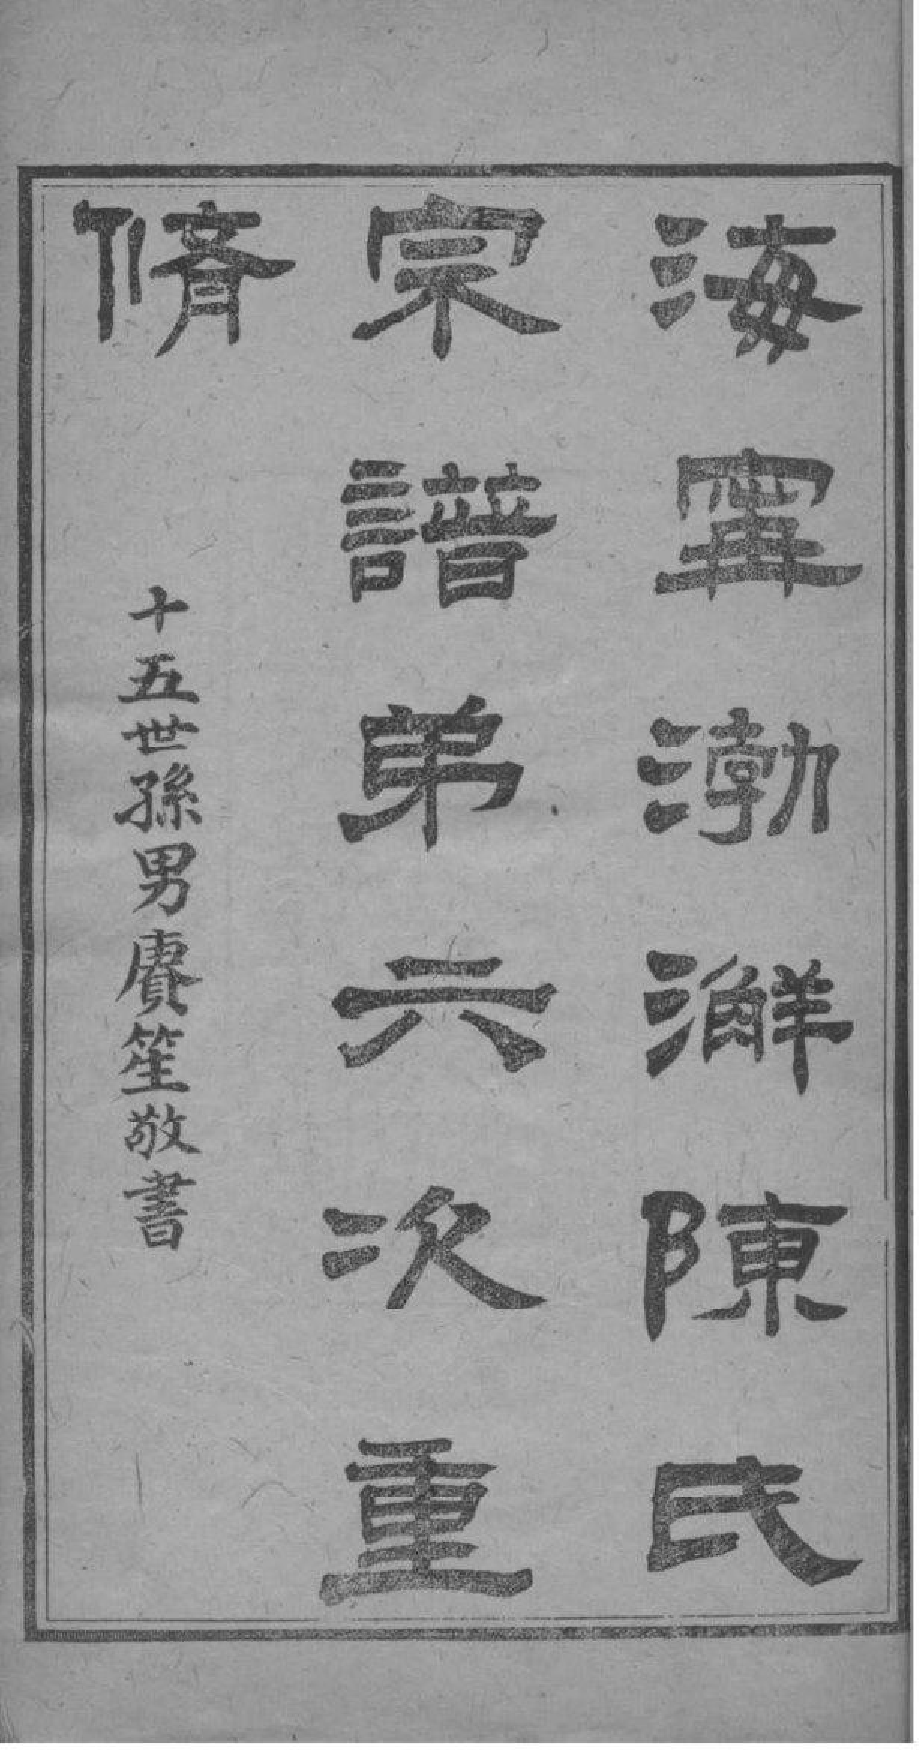 海寗渤澥陳氏
宗譜弟六次重
脩
十五世孫男賡笙敬書